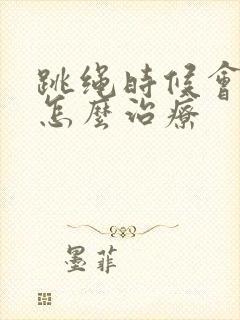 跳绳時候會
怎麼治療
墨菲